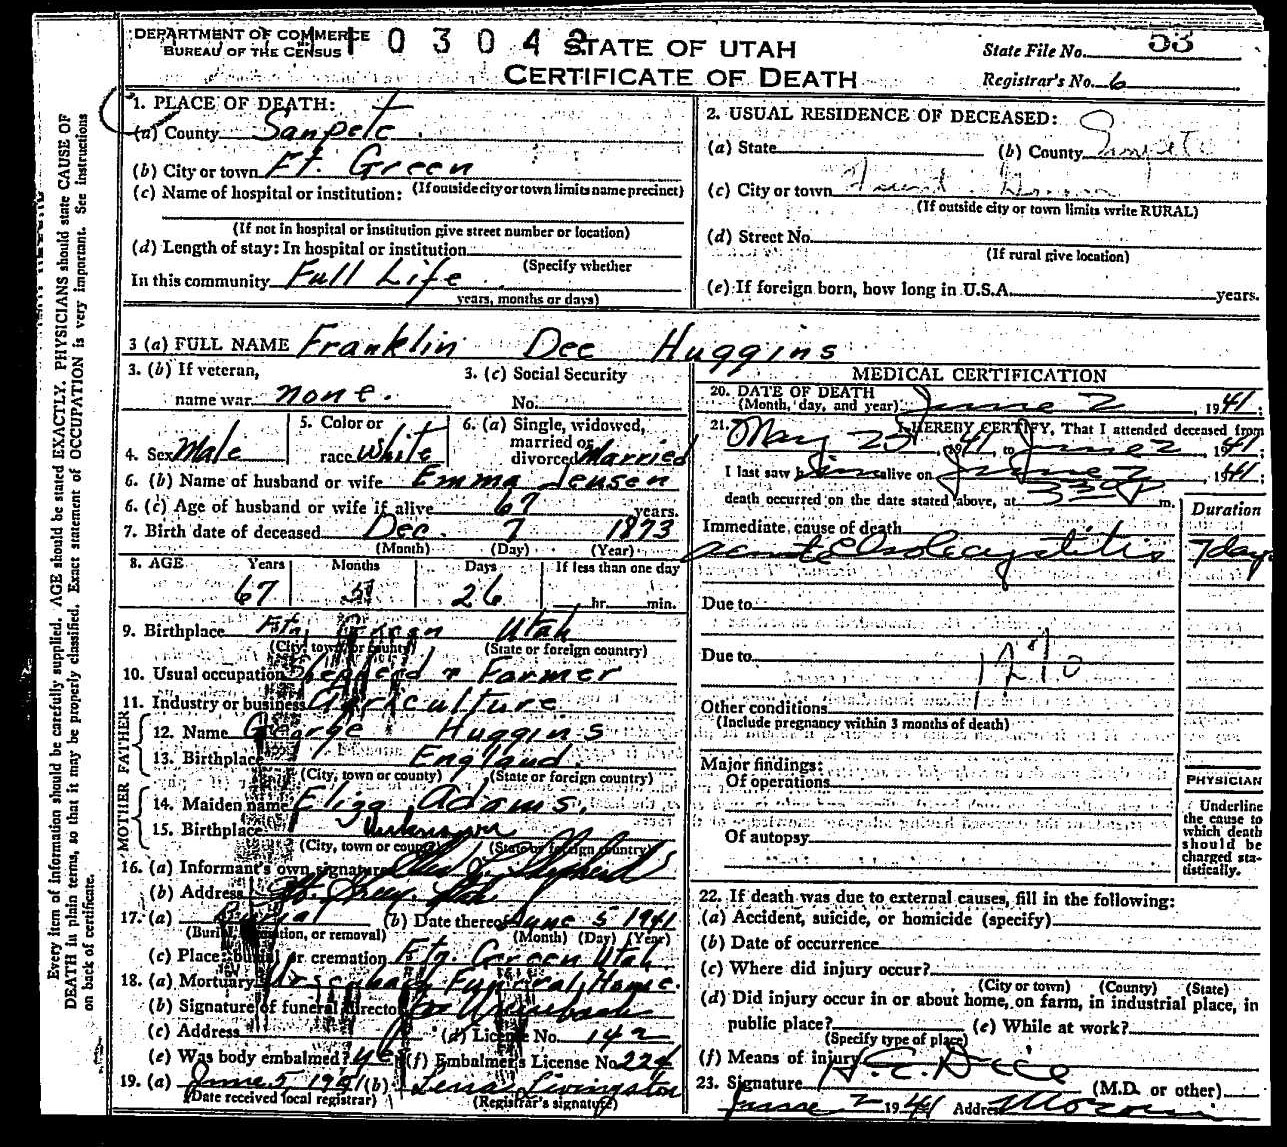 DEPARTMENT OF COMMERCE
BUREAU OF THE CENSUS
03042
STATE OF UTAH
CERTIFICATE OF DEATH
State File No. 53
Registrar's No. 6
1. PLACE OF DEATH:
(a) County Sanpete
(b) City or town Ft. Green
(If outside city or town limits name precinct)
(c) Name of hospital or institution:
(If not in hospital or institution give street number or location)
(d) Length of stay: In hospital or institution
(Specify whether
In this community Full Life
years, months or days)
2. USUAL RESIDENCE OF DECEASED:
(a) State (b) County Sanpete
(c) City or town
(If outside city or town limits write RURAL)
(d) Street No.
(If rural give location)
(e) If foreign born, how long in U.S.A. years.
3 (a) FULL NAME Franklin Dee Huggins
3. (b) If veteran,
name war none.
3. (c) Social Security
No.
4. Sex Male
5. Color or
race White
6. (a) Single, widowed,
married or
divorced Married
6. (b) Name of husband or wife Emma Jensen
6. (c) Age of husband or wife if alive 67 years.
7. Birth date of deceased Dec. 7 1873
(Month) (Day) (Year)
8. AGE Years Months Days If less than one day
67 5 26 hr. min.
9. Birthplace Ftn Green Utah
(City, town, or county) (State or foreign country)
10. Usual occupation & Farmer
11. Industry or business Agriculture
FATHER
12. Name George Huggins
13. Birthplace England.
(City, town or county) (State or foreign country)
MOTHER
14. Maiden name Eliza Adams.
15. Birthplace Unknown
(City, town or county) (State or foreign country)
16. (a) Informant's own signature Shepherd
(b) Address Ft. Green, Utah
17. (a) Burial (b) Date thereof June 5 1941
(Burial, cremation, or removal) (Month) (Day) (Year)
(c) Place: burial or cremation Ftn. Green Utah
18. (a) Mortuary Ursenbach Funeral Home.
(b) Signature of funeral director Ursenbach
(c) Address (d) License No. 142
(e) Was body embalmed? yes (f) Embalmer's License No. 224
19. (a) June 5, 1941 (b) Lena Livingston
(Date received local registrar) (Registrar's signature)
MEDICAL CERTIFICATION
20. DATE OF DEATH
(Month, day, and year) June 2, 1941;
21. I HEREBY CERTIFY, That I attended deceased from
May 25, 1941, to June 2, 1941;
I last saw him alive on June 2, 1941;
death occurred on the date stated above, at 330 P m.
Duration
Immediate cause of death
acute Cholecystitis 7 days
Due to
Due to
Other conditions
(Include pregnancy within 3 months of death)
Major findings:
Of operations
Of autopsy
PHYSICIAN
Underline
the cause to
which death
should be
charged sta-
tistically.
22. If death was due to external causes, fill in the following:
(a) Accident, suicide, or homicide (specify)
(b) Date of occurrence
(c) Where did injury occur?
(City or town) (County) (State)
(d) Did injury occur in or about home, on farm, in industrial place, in
public place? (e) While at work?
(Specify type of place)
(f) Means of injury
23. Signature (M.D. or other)
June 2 1941 Address Moroni
Every item of information should be carefully supplied. AGE should be stated EXACTLY. PHYSICIANS should state CAUSE OF
DEATH in plain terms, so that it may be properly classified. Exact statement of OCCUPATION is very important. See instructions
on back of certificate.